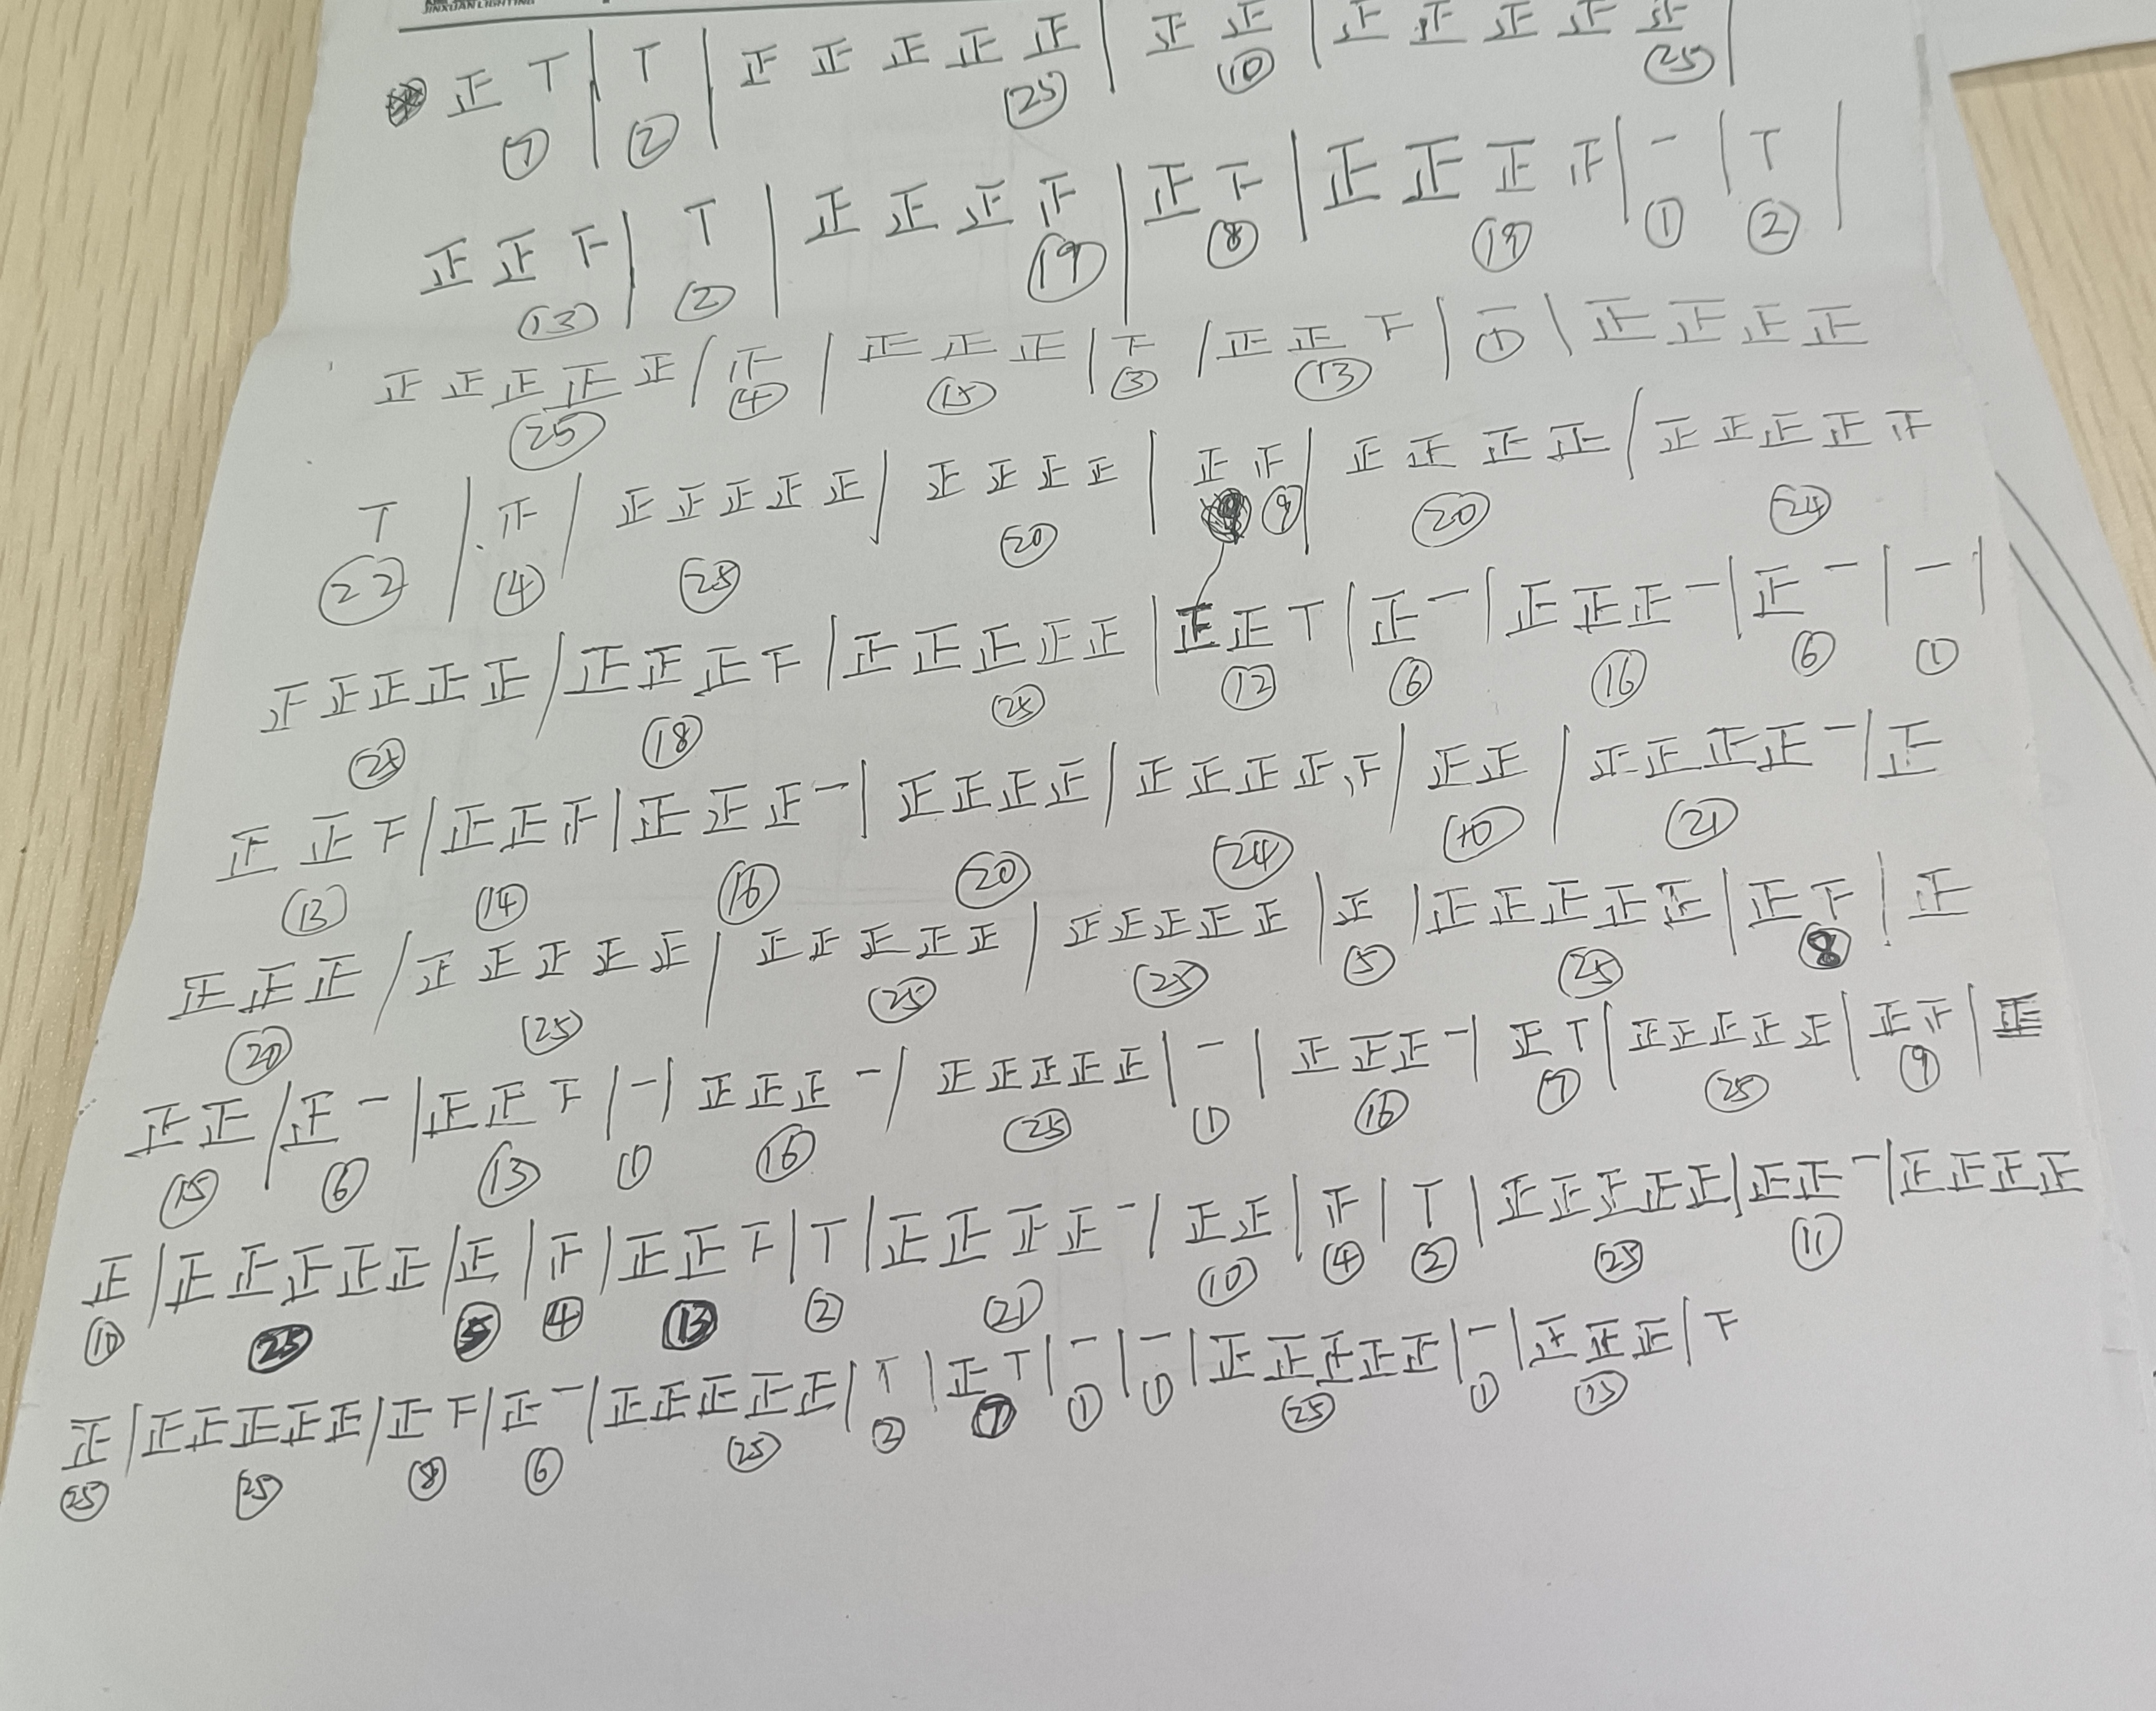 JINXUAN LIGHTING
正 丅 | 丅 | 正 正 正 正 正 | 正 正 | 正 正 正 正 正 |
⑦ ② ㉕ ⑩ ㉕
正 正 下 | 丅 | 正 正 正 止 | 正 下 | 正 正 正 止 | 一 | 丅 |
⑬ ② ⑲ ⑧ ⑲ ① ②
正 正 正 正 正 | 止 | 正 正 正 | 下 | 正 正 下 | 一 | 正 正 正 正
㉕ ④ ⑮ ③ ⑬ ①
丅 | 止 | 正 正 正 正 正 | 正 正 正 正 | 正 止 | 正 正 正 正 | 正 正 正 正 止
㉒ ④ ㉕ ⑳ ⑨ ⑳ ㉔
正 正 正 正 正 | 正 正 正 下 | 正 正 正 正 正 | 正 正 丅 | 正 一 | 正 正 正 一 | 正 一 | 一 |
㉕ ⑱ ㉕ ⑫ ⑥ ⑯ ⑥ ①
正 正 下 | 正 正 止 | 正 正 正 一 | 正 正 正 正 | 正 正 正 正 止 | 正 正 | 正 正 正 正 一 | 正
⑬ ⑭ ⑯ ⑳ ㉔ ⑩ ㉑
正 正 正 | 正 正 正 正 正 | 正 正 正 正 正 | 正 正 正 正 正 | 正 | 正 正 正 正 正 | 正 下 | 正
⑳ ㉕ ㉕ ㉕ ⑤ ㉕ ⑧
正 正 | 正 一 | 正 正 下 | 一 | 正 正 正 一 | 正 正 正 正 正 | 一 | 正 正 正 一 | 正 丅 | 正 正 正 正 正 | 正 止 | 正
⑮ ⑥ ⑬ ① ⑯ ㉕ ① ⑯ ⑦ ㉕ ⑨
正 | 正 正 正 正 正 | 正 | 止 | 正 正 下 | 丅 | 正 正 正 正 一 | 正 正 | 止 | 丅 | 正 正 正 正 正 | 正 正 一 | 正 正 正 正
⑩ ㉕ ⑤ ④ ⑬ ② ㉑ ⑩ ④ ② ㉕ ⑪
正 | 正 正 正 正 正 | 正 下 | 正 一 | 正 正 正 正 正 | 丅 | 正 丅 | 一 | 一 | 正 正 正 正 正 | 一 | 正 正 正 | 下
㉕ ㉕ ⑧ ⑥ ㉕ ② ⑦ ① ① ㉕ ① ⑮